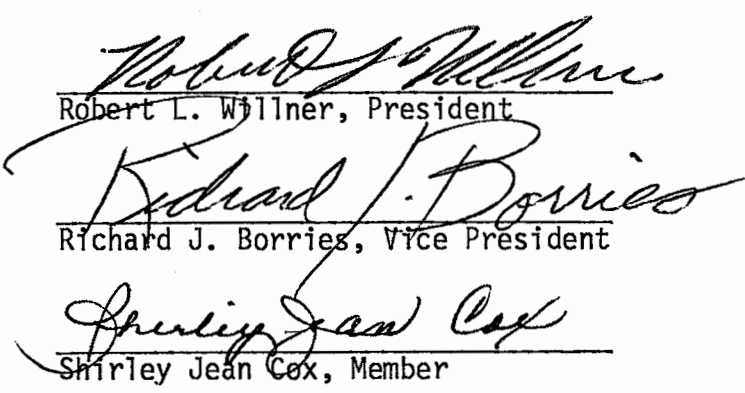 Robert L Willner
Robert L. Willner, President
Richard J. Borries
Richard J. Borries, Vice President
Shirley Jean Cox
Shirley Jean Cox, Member